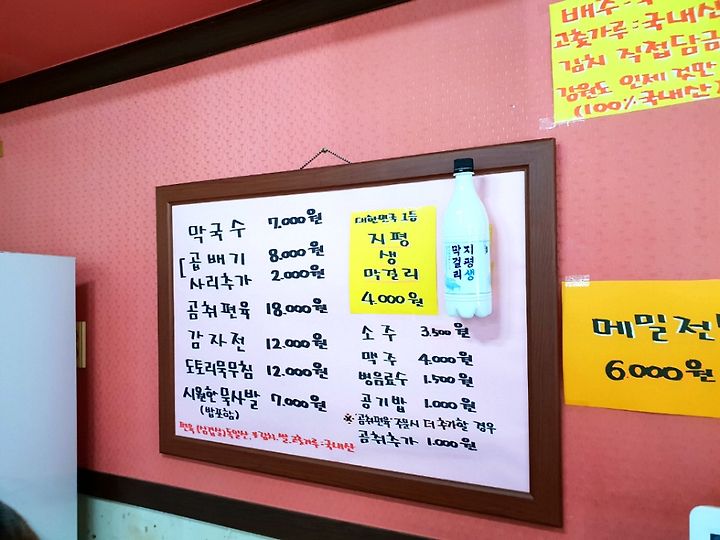 막국수 7.000원
곱배기 8.000원
사리추가 2.000원
곰취편육 18.000원
감자전 12.000원
도토리묵무침 12.000원
시원한 묵사발 7.000원
(밥포함)
편육(삼겹살)독일산, 김치.쌀.고춧가루:국내산
대한민국 1등
지평
생
막걸리
4.000원
지평생
막걸리
소주 3.500원
맥주 4.000원
병음료수 1.500원
공기밥 1.000원
※"곰취편육"주문시 더 추가할 경우
곰취추가 1.000원
배추:
고춧가루:국내산
김치 직접담금
강원도 인제 것만
(100%국내산)
메밀전
6.000원